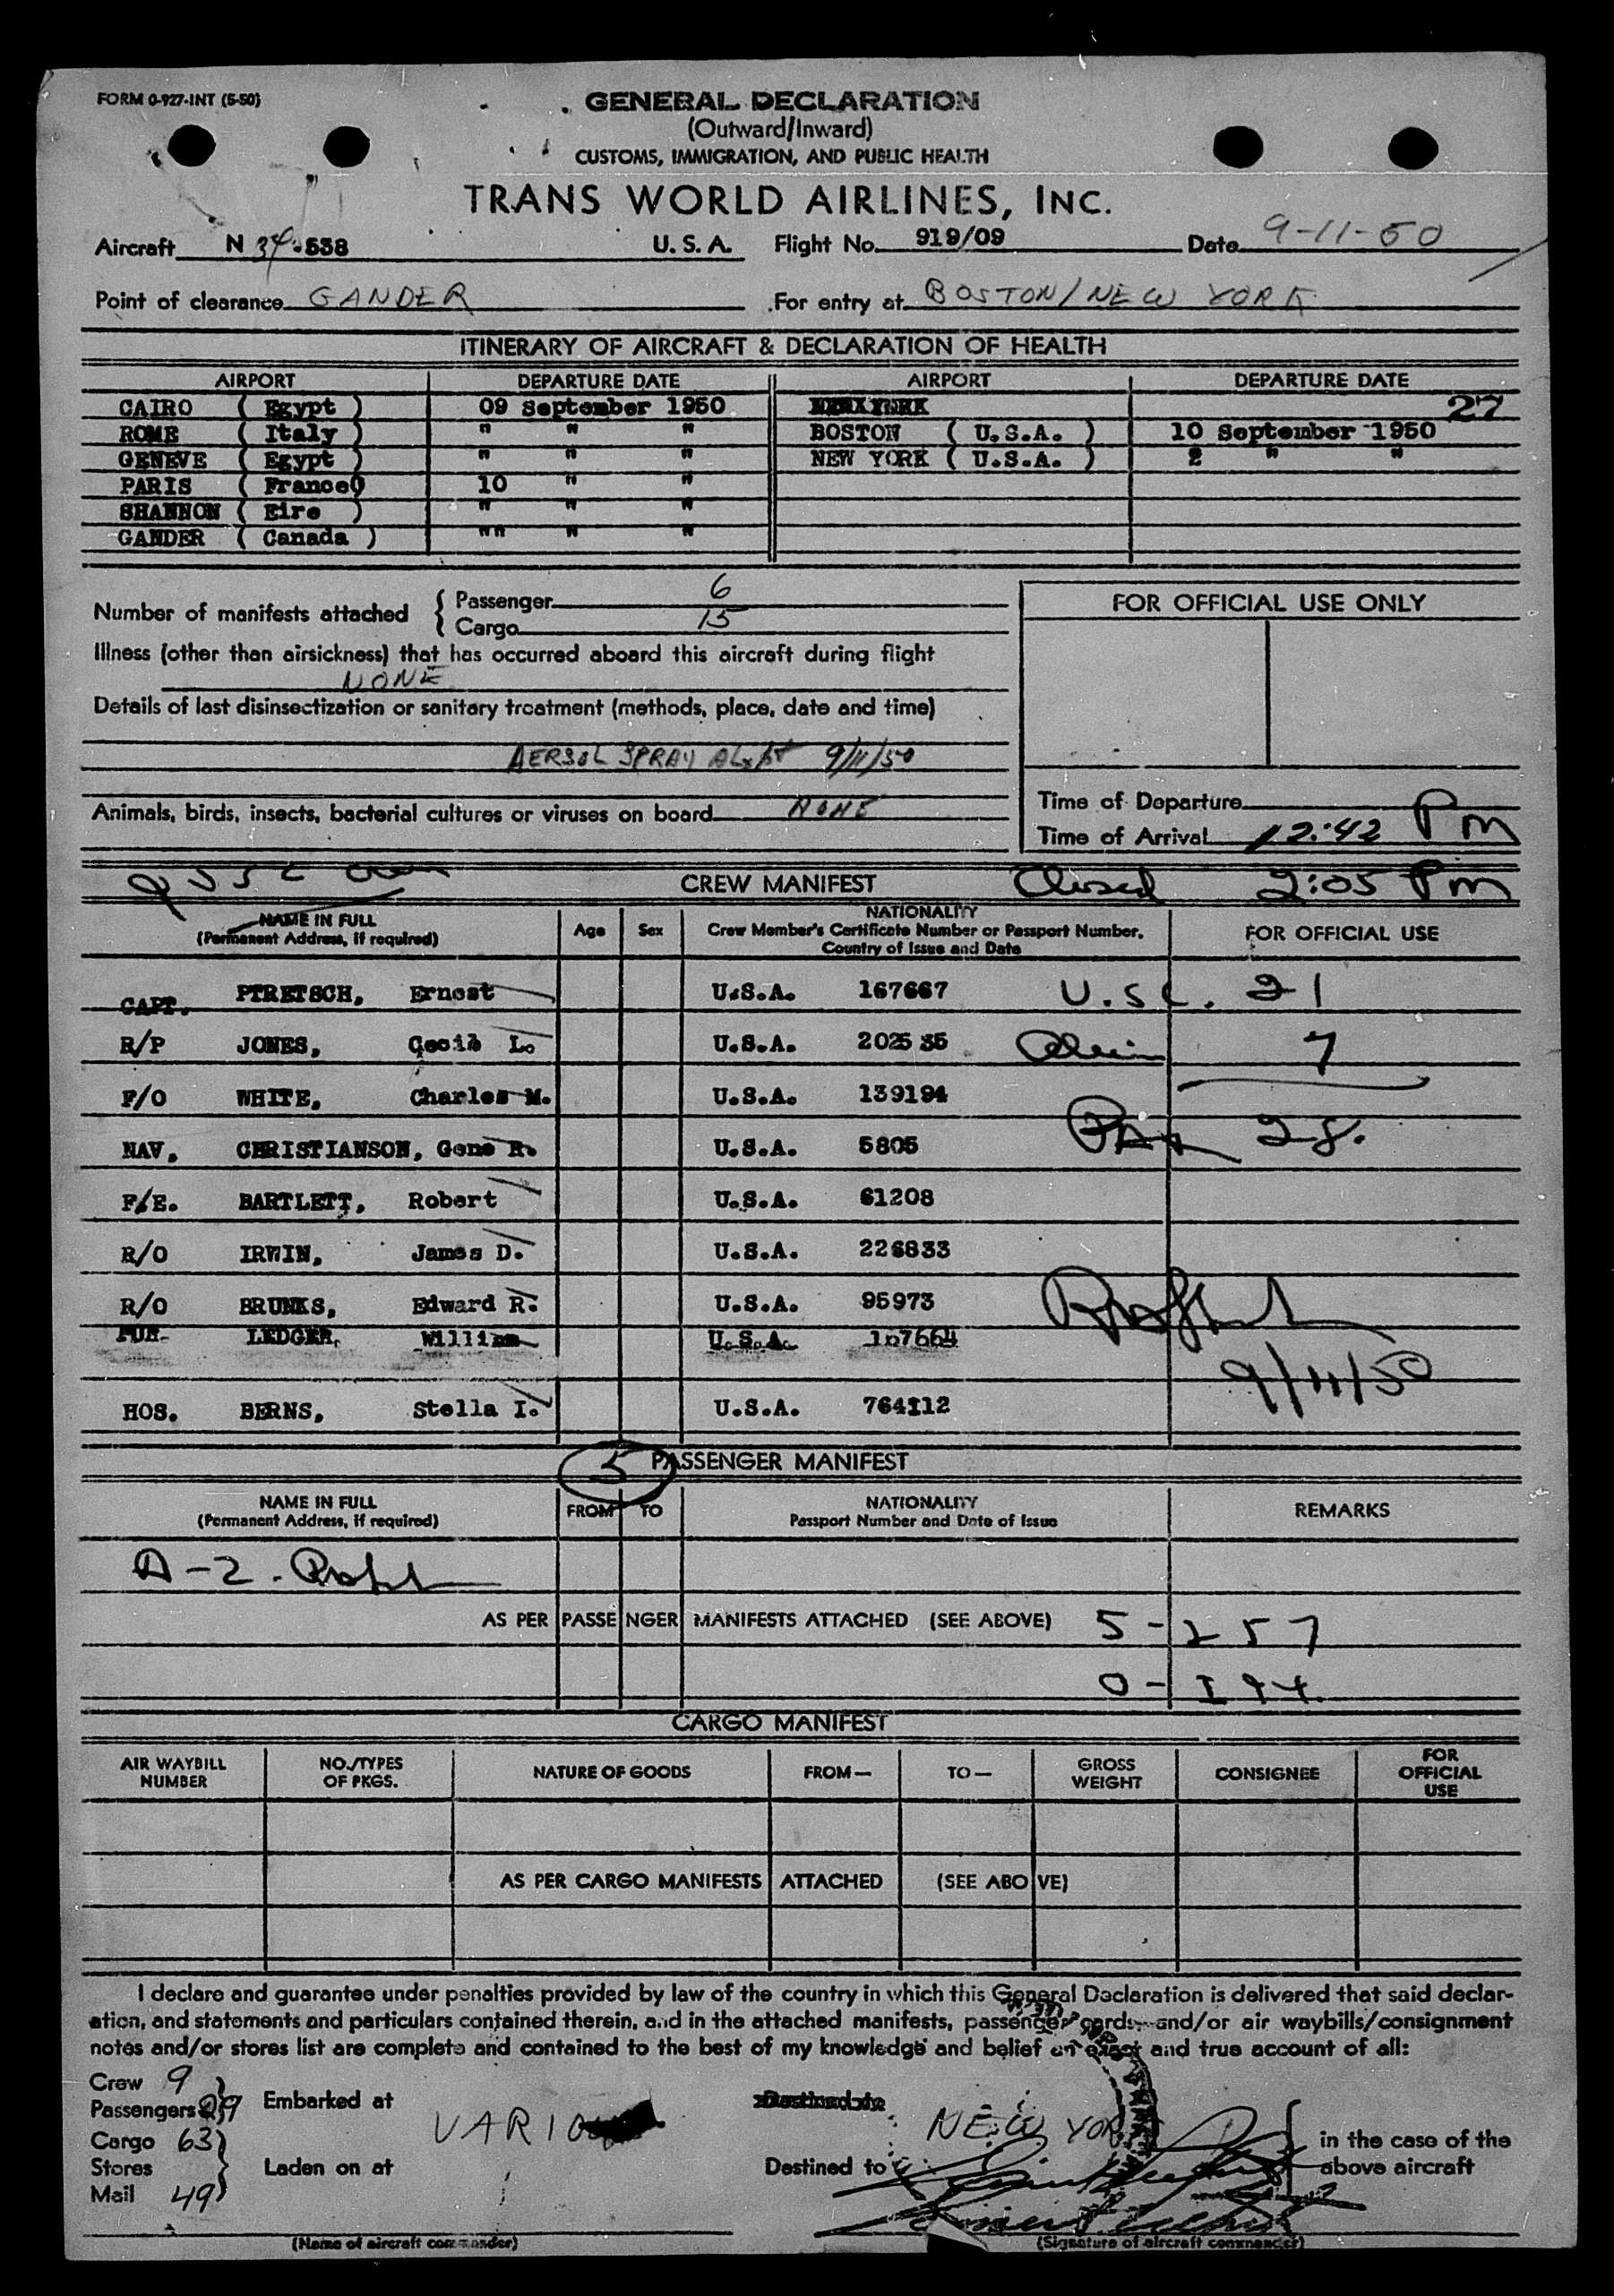 FORM 0-927-INT (5-50)
GENERAL DECLARATION
(Outward/Inward)
CUSTOMS, IMMIGRATION, AND PUBLIC HEALTH
TRANS WORLD AIRLINES, INC.
Aircraft N 34-538 U. S. A. Flight No. 919/09 Date 9-11-50
Point of clearance GANDER For entry at BOSTON/NEW YORK
ITINERARY OF AIRCRAFT & DECLARATION OF HEALTH
AIRPORT DEPARTURE DATE AIRPORT DEPARTURE DATE
CAIRO ( Egypt ) 09 September 1950 27
ROME ( Italy ) " " " BOSTON ( U.S.A. ) 10 September 1950
GENEVE ( Egypt ) " " " NEW YORK ( U.S.A. ) 2 " "
PARIS ( France() 10 " "
SHANNON ( Eire ) " " "
GANDER ( Canada ) "" " "
Number of manifests attached { Passenger 6
Cargo 15
FOR OFFICIAL USE ONLY
Illness (other than airsickness) that has occurred aboard this aircraft during flight
NONE
Details of last disinsectization or sanitary treatment (methods, place, date and time)
AERSOL SPRAY 9/11/50
Animals, birds, insects, bacterial cultures or viruses on board NONE
Time of Departure
Time of Arrival 12:42 Pm
CREW MANIFEST Closed 2:05 Pm
NAME IN FULL
(Permanent Address, if required)
Age Sex
NATIONALITY
Crew Member's Certificate Number or Passport Number,
Country of Issue and Date
FOR OFFICIAL USE
CAPT. PTRETSCH, Ernest U.S.A. 167667 U.SC. 21
R/P JONES, Cecil L. U.S.A. 202535 Alien 7
F/O WHITE, Charles M. U.S.A. 139194
NAV. CHRISTIANSON, Gene R. U.S.A. 5805 Pax 28.
F/E. BARTLETT, Robert U.S.A. 61208
R/O IRWIN, James D. U.S.A. 226833
R/O BRUNKS, Edward R. U.S.A. 95973
PUR. LEDGER, William U.S.A. 167664
9/11/50
HOS. BERNS, Stella I. U.S.A. 764112
5 PASSENGER MANIFEST
NAME IN FULL
(Permanent Address, if required)
FROM TO
NATIONALITY
Passport Number and Date of Issue
REMARKS
A-2.
AS PER PASSENGER MANIFESTS ATTACHED (SEE ABOVE) 5-257
0-
CARGO MANIFEST
AIR WAYBILL NUMBER NO./TYPES OF PKGS. NATURE OF GOODS FROM— TO— GROSS WEIGHT CONSIGNEE FOR OFFICIAL USE
AS PER CARGO MANIFESTS ATTACHED (SEE ABOVE)
I declare and guarantee under penalties provided by law of the country in which this General Declaration is delivered that said declar-
ation, and statements and particulars contained therein, and in the attached manifests, passenger cards, and/or air waybills/consignment
notes and/or stores list are complete and contained to the best of my knowledge and belief an exact and true account of all:
Crew 9
Passengers 29 Embarked at VARIOUS NEW YORK
Cargo 63 in the case of the
Stores Laden on at Destined to above aircraft
Mail 49
(Name of aircraft commander) (Signature of aircraft commander)